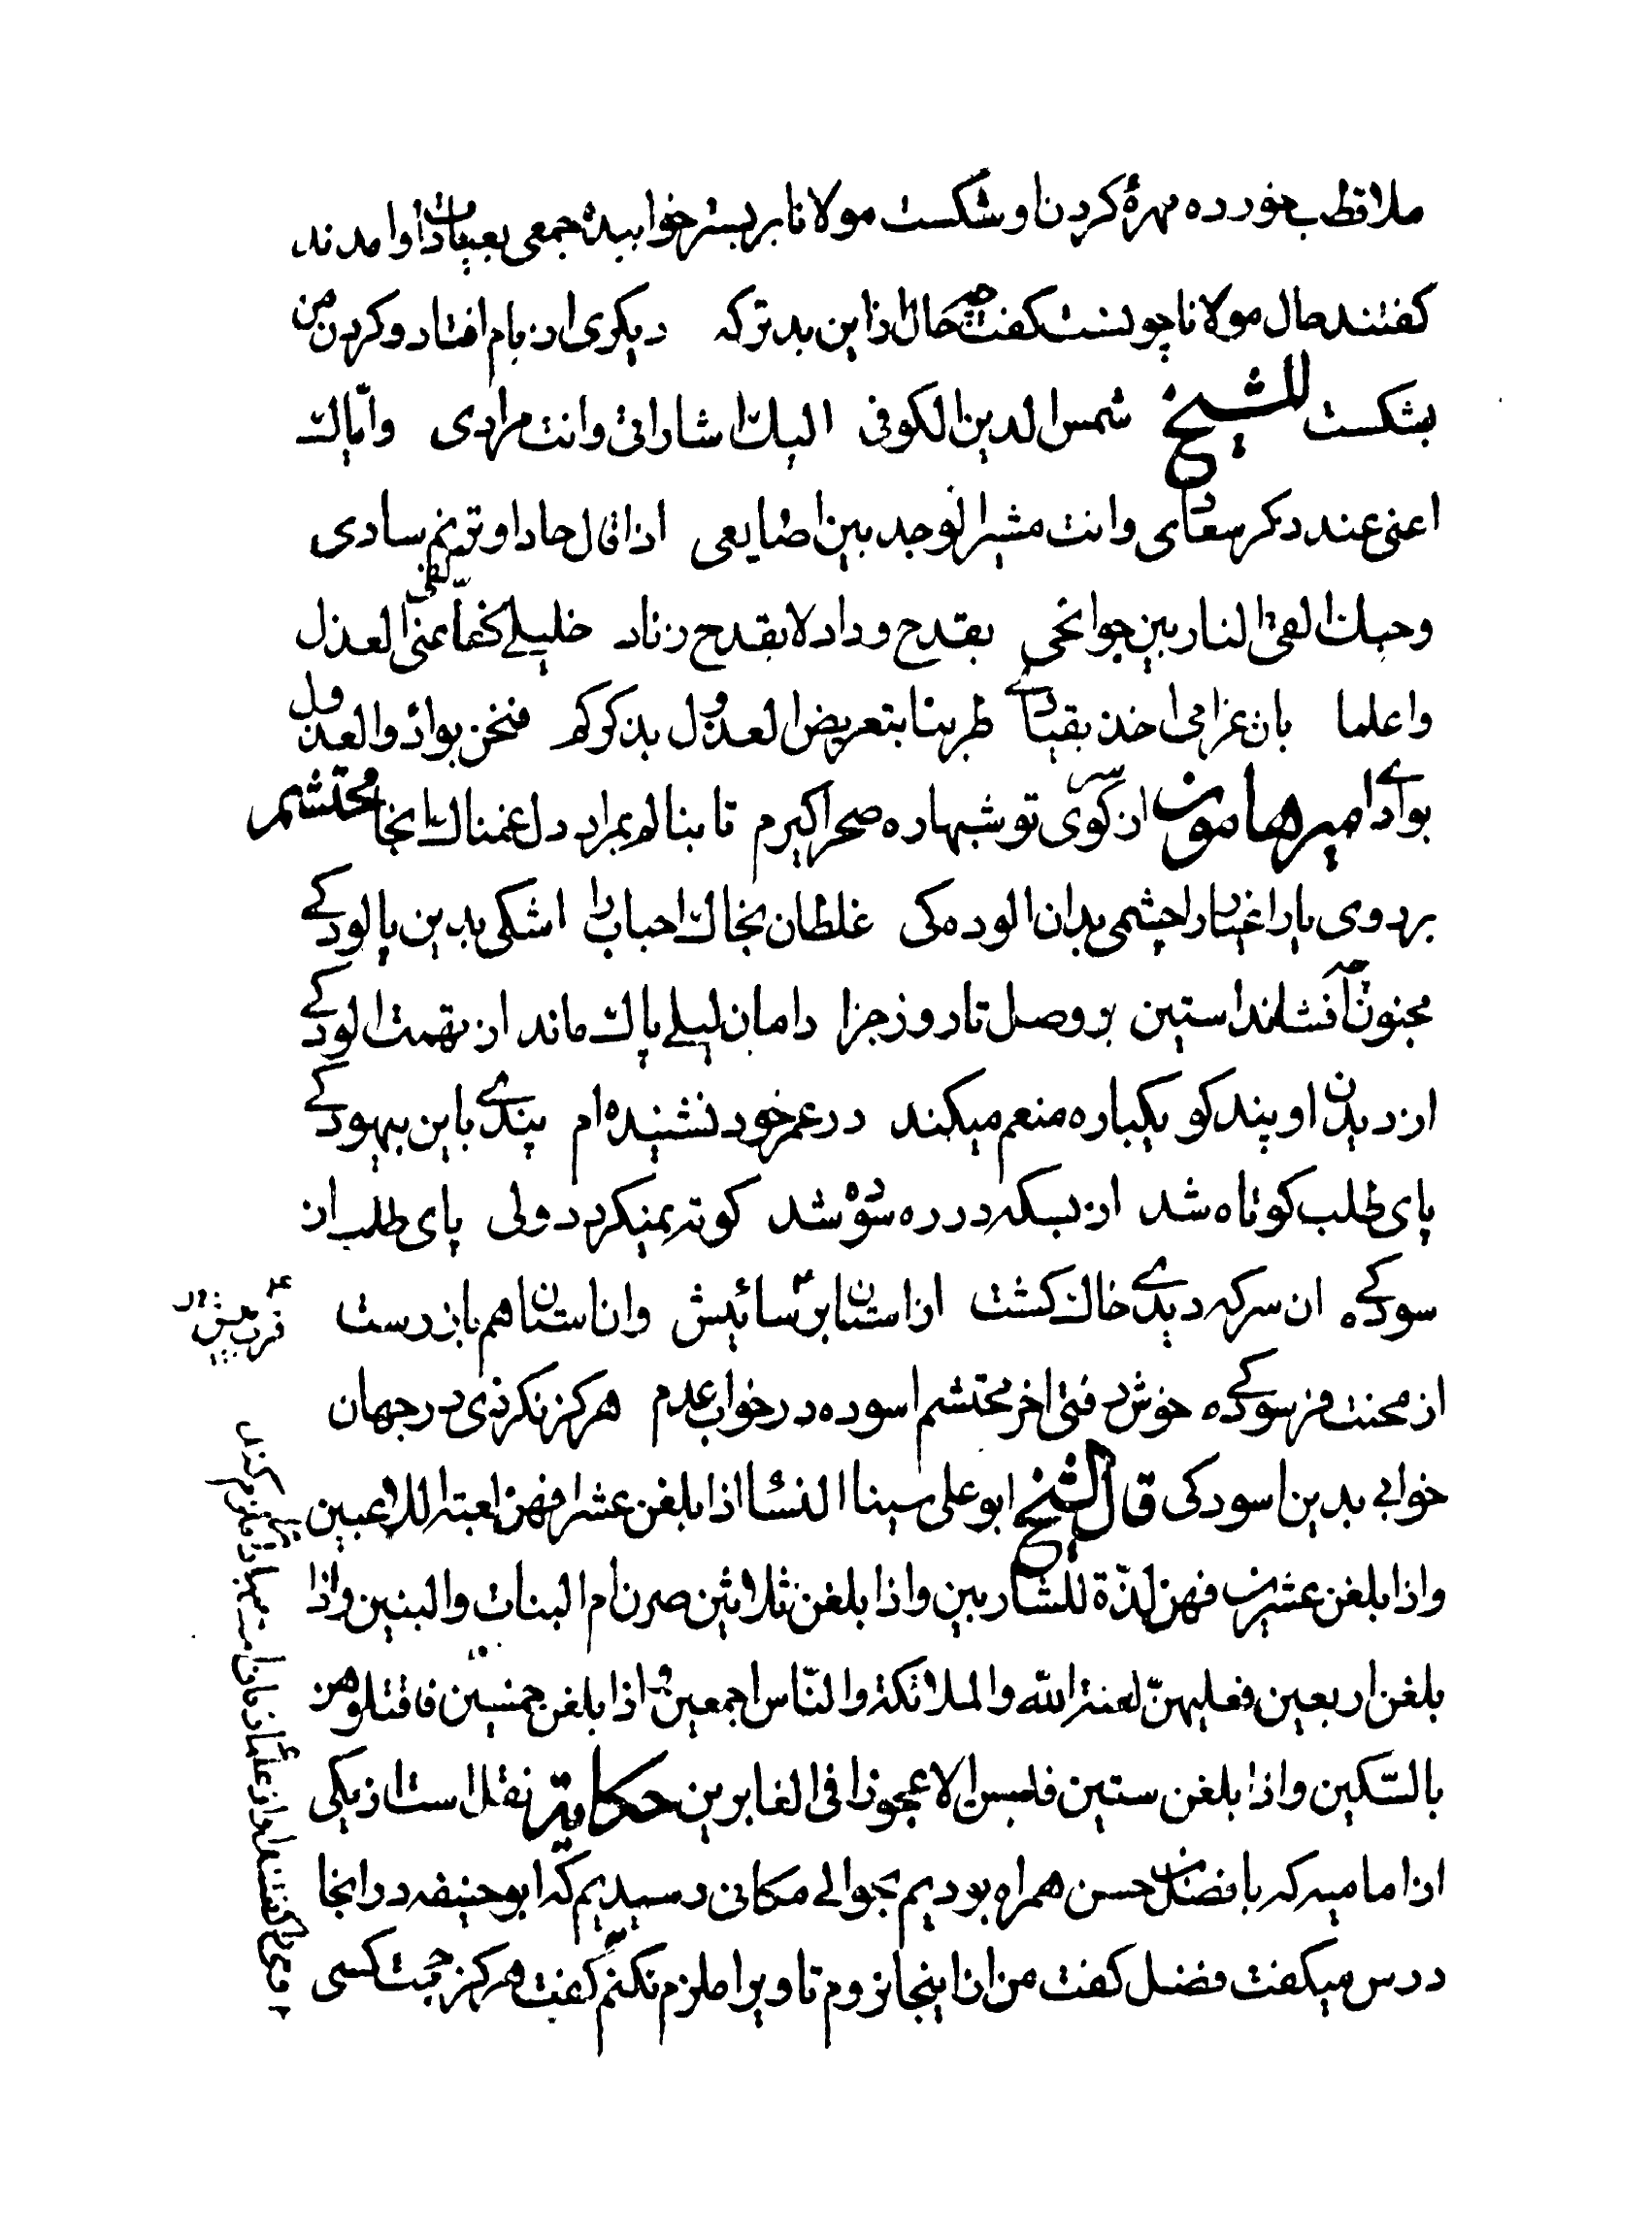 ملا قطب خورده مهرهٔ کردن او شکست مولانا بر بستر خوابیده جمعی بعیادت او امدند
کفتند حال مولانا چونست کفت چه حال از این بدتر که دیکری از بام افتاد و کردن من
بشکست للشیخ شمس الدین الکوفی الیك اشاراتی وانت مرادی وایاك
اعنی عند ذکر سعاد وانت مثیر الوجد بین اضالعی اذا قال حاد او ترنم شادی
وحبك القی النار بین جوانحی بقدح وداد لا بقدح زناد خلیلی کفا عنی العذل
واعلما بان غرامی اخذ بقیادی طربنا بتعریض العذول بذکرکم فنحن بواد والعذول
بوادی امیر هامون از کوی تو شبها ره صحرا کیرم تا بنالم بمراد دل غمناك انجا محتشم
بر روی یار اغیار را چشمی بدان الوده کی غلطان بخاك احباب را اشکی بدین پالودکی
مجنون چه افشاند استین بر وصل تا روز جزا دامان لیلی پاك ماند از تهمت الودکی
از دیدن او پند کو یکباره منعم میکند در عمر خود نشنیده ام پندی باین بیهودکی
پای طلب کوتاه شد از بسکه در ره سوده شد کوته نمیکردد ولی پای طلب از
سودکی ان سر که دیدی خاك کشت از استان برسائیش وان استان هم باز رست
از محنت فرسودکی خوش رفتی اخر محتشم اسوده در خواب عدم هرکز نکردی در جهان
خوابی بدین اسودکی قال الشیخ ابو علی سینا النسا اذا بلغن عشرا فهن لعبة للاعبین
واذا بلغن عشرین فهن لذّة للشاربین واذا بلغن ثلاثین صرن ام البنات والبنین واذا
بلغن اربعین فعلیهنّ لعنة الله والملائکة والنّاس اجمعین واذا بلغن خمسین فاقتلوهن
بالسّکین واذا بلغن ستین فلیس الا عجوزا فی الغابرین حکایة نقل است از یکی
از امامیه که با فضل بن حسن همراه بودیم بحوالی مکانی رسیدیم که ابو حنیفه در انجا
درس میکفت فضل کفت من از اینجا نروم تا ویرا ملزم نکنم کفتم هرکز حجت کسی